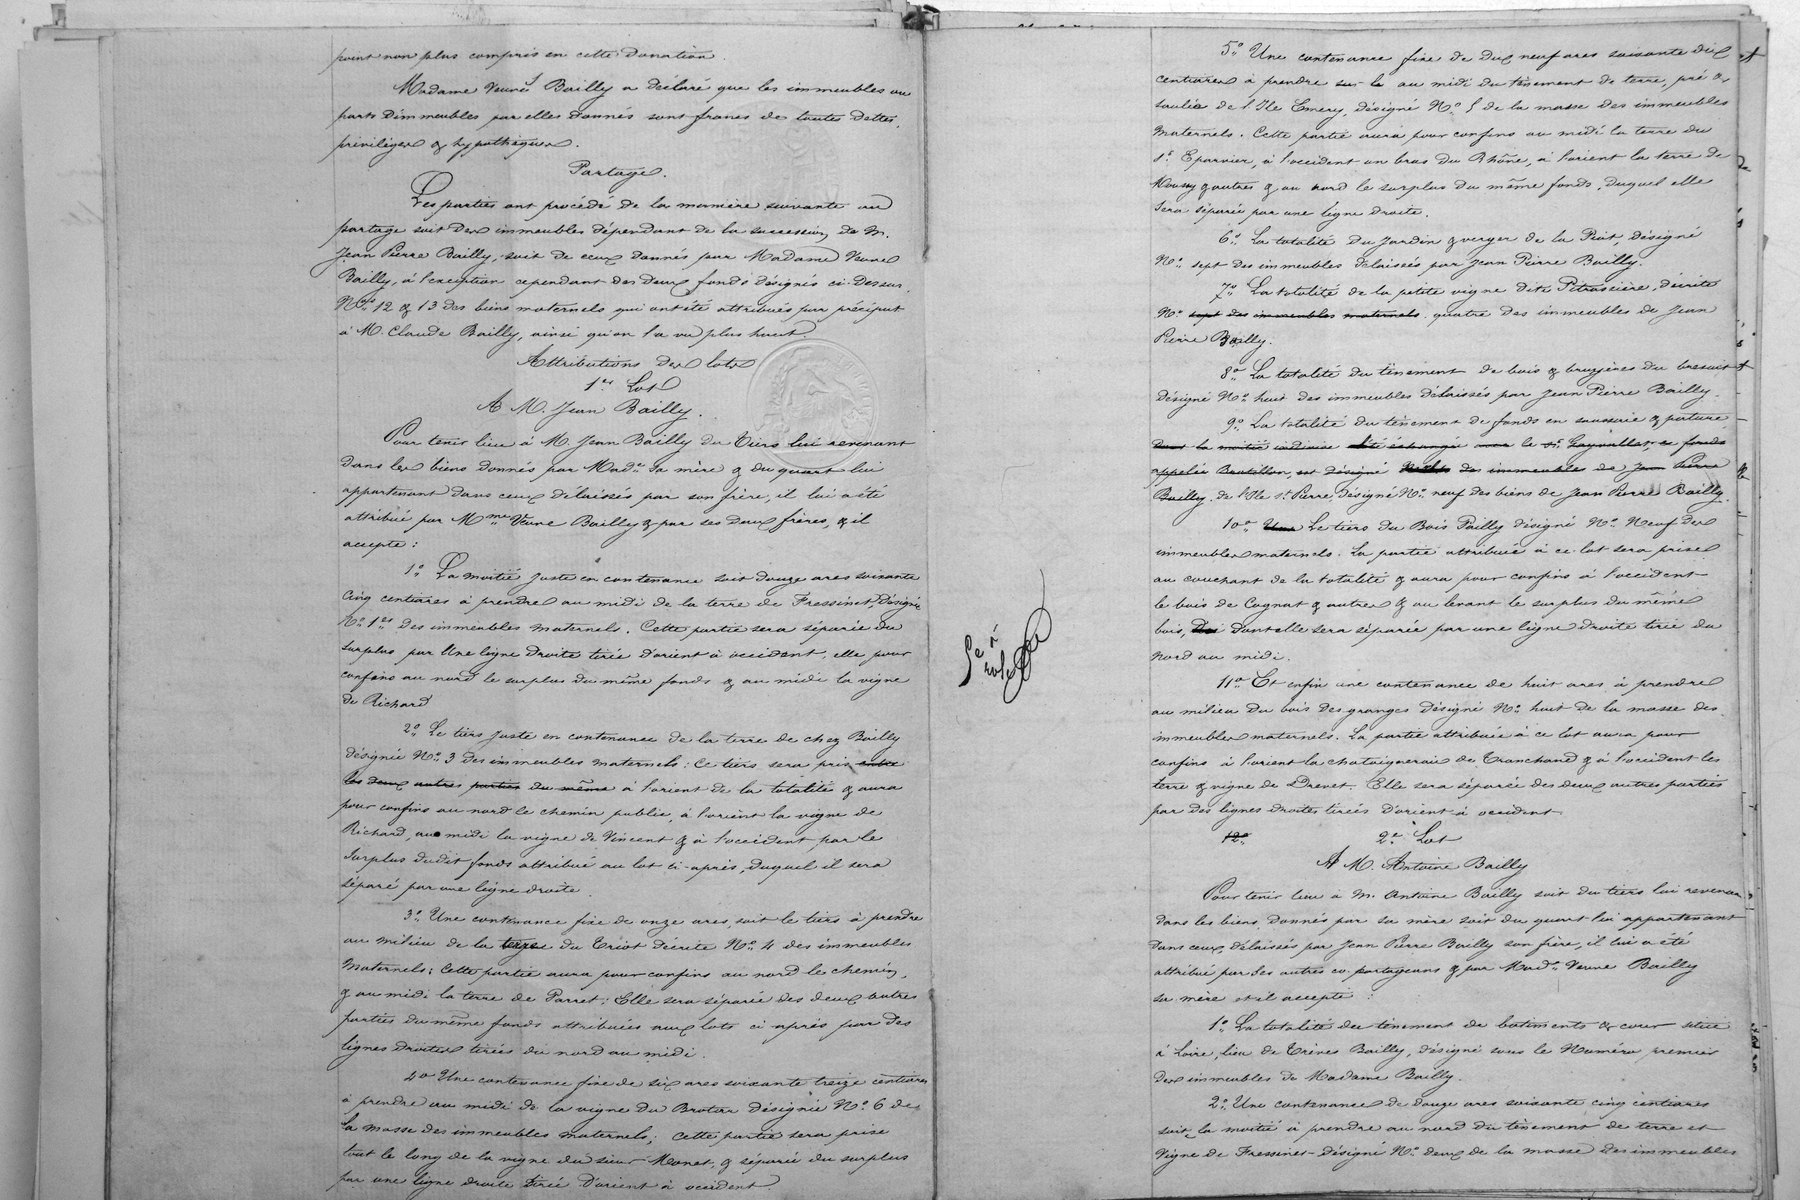 point non plus compris en cette donation.
Madame Veuve Bailly a déclaré que les immeubles ou
parts d'immeubles par elles donnés sont francs de toutes dettes,
privilèges & hypothèques.
Partage.
Les parties ont procédé de la manière suivante au
partage soit des immeubles dépendant de la succession de M.
Jean Pierre Bailly, soit de ceux donnés par Madame Veuve
Bailly, à l'exception cependant des deux fonds désignés ci-dessus
Nos 12 & 13 des biens maternels qui ont été attribués par préciput
à M. Claude Bailly, ainsi qu'on l'a vu plus haut.
Attributions des lots
1er Lot
A M. Jean Bailly.
Pour tenir lieu à M. Jean Bailly du tiers lui revenant
dans les biens donnés par Made sa mère & du quart lui
appartenant dans ceux délaissés par son frère, il lui a été
attribué par Mme Veuve Bailly & par ses deux frères, & il
accepte :
1o La moitié juste en contenance soit douze ares soixante
cinq centiares à prendre au midi de la terre de Fressinet, désigné
No 1er des immeubles maternels. Cette partie sera séparée du
surplus par une ligne droite tirée d'orient à occident, elle pour
confins au nord le surplus du même fonds & au midi la vigne
de Richard
2o Le tiers juste en contenance de la terre de chez Bailly
désignée No 3 des immeubles maternels : Ce tiers sera pris entre
les deux autres parties du même à l'orient de la totalité & aura
pour confins au nord le chemin public, à l'orient la vigne de
Richard, au midi la vigne de Vincent & à l'occident par le
surplus dudit fonds attribué au lot ci-après, duquel il sera
séparé par une ligne droite.
3o Une contenance fixe de onze ares, soit le tiers à prendre
au milieu de la terre du Triot décrite No 4 des immeubles
maternels; Cette partie aura pour confins au nord le chemin,
& au midi la terre de Parret; Elle sera séparée des deux autres
parties du même fonds attribuées aux lots ci-après par des
lignes droites tirées du nord au midi.
4o Une contenance fixe de six ares soixante treize centiares
à prendre au midi de la vigne du Brotux désignée No 6 de
la masse des immeubles maternels; Cette partie sera prise
tout le long de la vigne du sieur Monet, & séparée du surplus
par une ligne droite tirée d'orient à occident.
5e r
role
5o Une contenance fixe de dix neuf ares soixante dix
centiares à prendre sur le au midi du tènement de terre, pré &
saulée de l'Ile Emery, désigné No 5 de la masse des immeubles
maternels. Cette partie aura pour confins au midi la terre du
sr Eparvier, à l'occident un bras du Rhône, à l'orient la terre de
Moussy & autres & au nord le surplus du même fonds, duquel elle
sera séparée par une ligne droite.
6o La totalité du jardin & verger de la Piat, désigné
No sept des immeubles délaissés par Jean Pierre Bailly.
7o La totalité de la petite vigne dite Pitrassière, décrite
No sept des immeubles maternels. quatre des immeubles de Jean
Pierre Bailly.
8o La totalité du tènement de bois & bruyères du bressuit
désigné No huit des immeubles délaissés par Jean Pierre Bailly.
9o La totalité du tènement de fonds en saussaie & pature,
dont la moitié indivise été échangée avec le sr Gayvallet, ce fonds
appelée Boutillon, est désigné des immeubles de Jean Pierre
Bailly. de l'Ile st Pierre, désigné No neuf des biens de Jean Pierre Bailly.
10o Une Le tiers du Bois Pailly désigné No Neuf des
immeubles maternels. La partie attribuée à ce lot sera prise
au couchant de la totalité & aura pour confins à l'occident
le bois de Cognat & autres & au levant le surplus du même
bois, dont elle sera séparée par une ligne droite tirée du
nord au midi.
11o Et enfin une contenance de huit ares à prendre
au milieu du bois des granges désigné No huit de la masse des
immeubles maternels. La partie attribuée à ce lot aura pour
confins à l'orient la chataigneraie de Tranchand & à l'occident les
terre & vigne de Drevet. Elle sera séparée des deux autres parties
par des lignes droites tirées d'orient à occident
12o
2e Lot
A M. Antoine Bailly
Pour tenir lieu à M. Antoine Bailly soit du tiers lui revenan
dans les biens donnés par sa mère soit du quart lui appartenant
dans ceux délaissés par Jean Pierre Bailly son frère, il lui a été
attribué par ses autres co-partageans & par Made Veuve Bailly
sa mère et il accepte :
1o La totalité du tènement de batiments & cour situé
à Loire, lieu de Trèves Bailly, désigné sous le Numéro premier
des immeubles de Madame Bailly.
2o Une contenance de douze ares soixante cinq centiares
soit la moitié à prendre au nord du tènement de terre et
vigne de Fressinet désigné No deux de la masse des immeubles